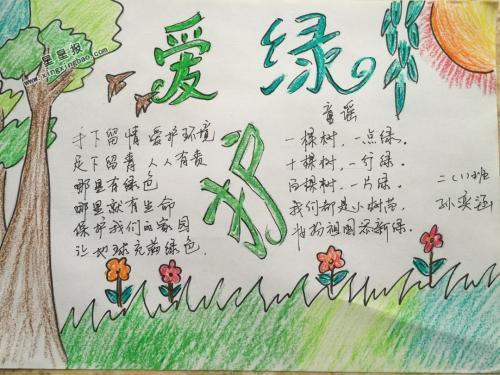 星星报
www.xingxingbao.com
爱绿
手下留情 爱护环境
足下留青 人人有责
哪里有绿色
哪里就有生命
保护我们的家园
让地球充满绿色
童谣
一棵树，一点绿。
十棵树，一行绿。
百棵树，一片绿。
我们都是小树苗。
祖国添新绿。
二(1)班
孙奕涵